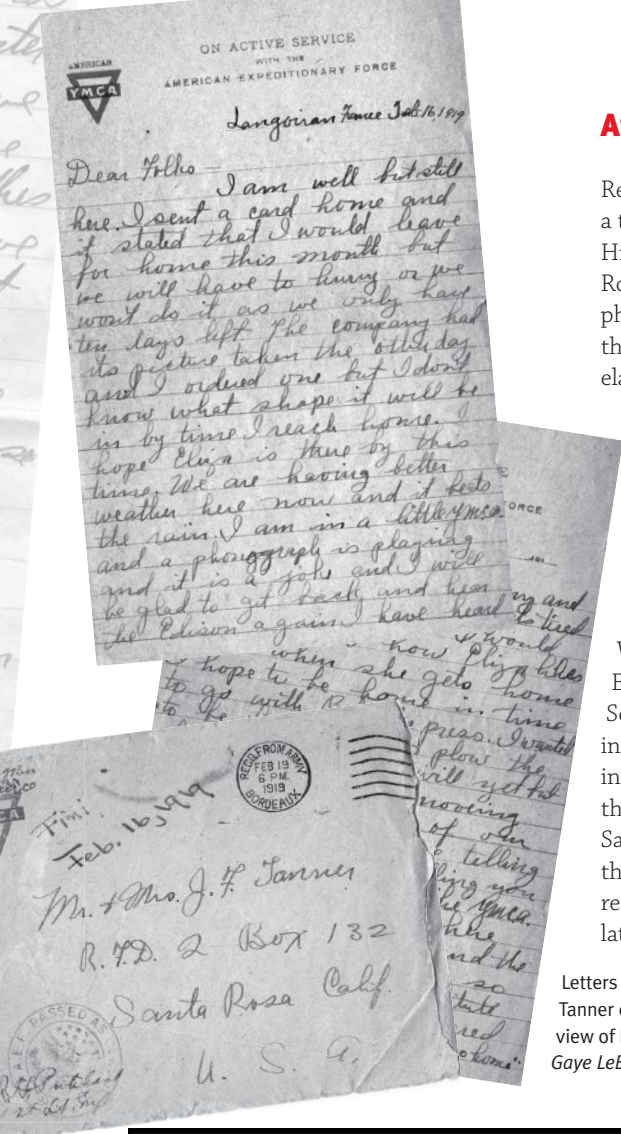 AMERICAN
YMCA
ON ACTIVE SERVICE
WITH THE
AMERICAN EXPEDITIONARY FORCE
Langoiran France Feb. 16, 1919
Dear Folks —
I am well but still
here. I sent a card home and
it stated that I would leave
for home this month but
we will have to hurry or we
won't do it as we only have
ten days left The company had
its picture taken the other day
and I ordered one but I don't
know what shape it will be
in by time I reach home. I
hope Eliza is there by this
time. We are having better
weather here now and it beats
the rain. I am in a little Ymca.
and a phonograph is playing
and it is a joke and I will
be glad to git back and hear
the Edison again I have heard
ORCE
191
and
to tired
would
when she gets home
how Eliza likes
hope to be
to go with
home in time
to be
press. I wanted
plow the
will yet
mooving
of our
telling
ling you
he Ymca.
here
nd the
so
tute
red
home".
REC'D. FROM ARMY
FEB 19
6 PM.
1919
BORDEAUX
Feb. 16, 1919
Mr. & Mrs. J. F. Tanner
R.F.D. 2 Box 132
Santa Rosa Calif.
U. S. A.
A.E.F. PASSED AS
1st Lt. Inf
A
Re
a t
Hi
Ro
ph
th
ela
W
E
Se
in
in
th
Sa
th
re
lat
Letters
Tanner
view of
Gaye LeB